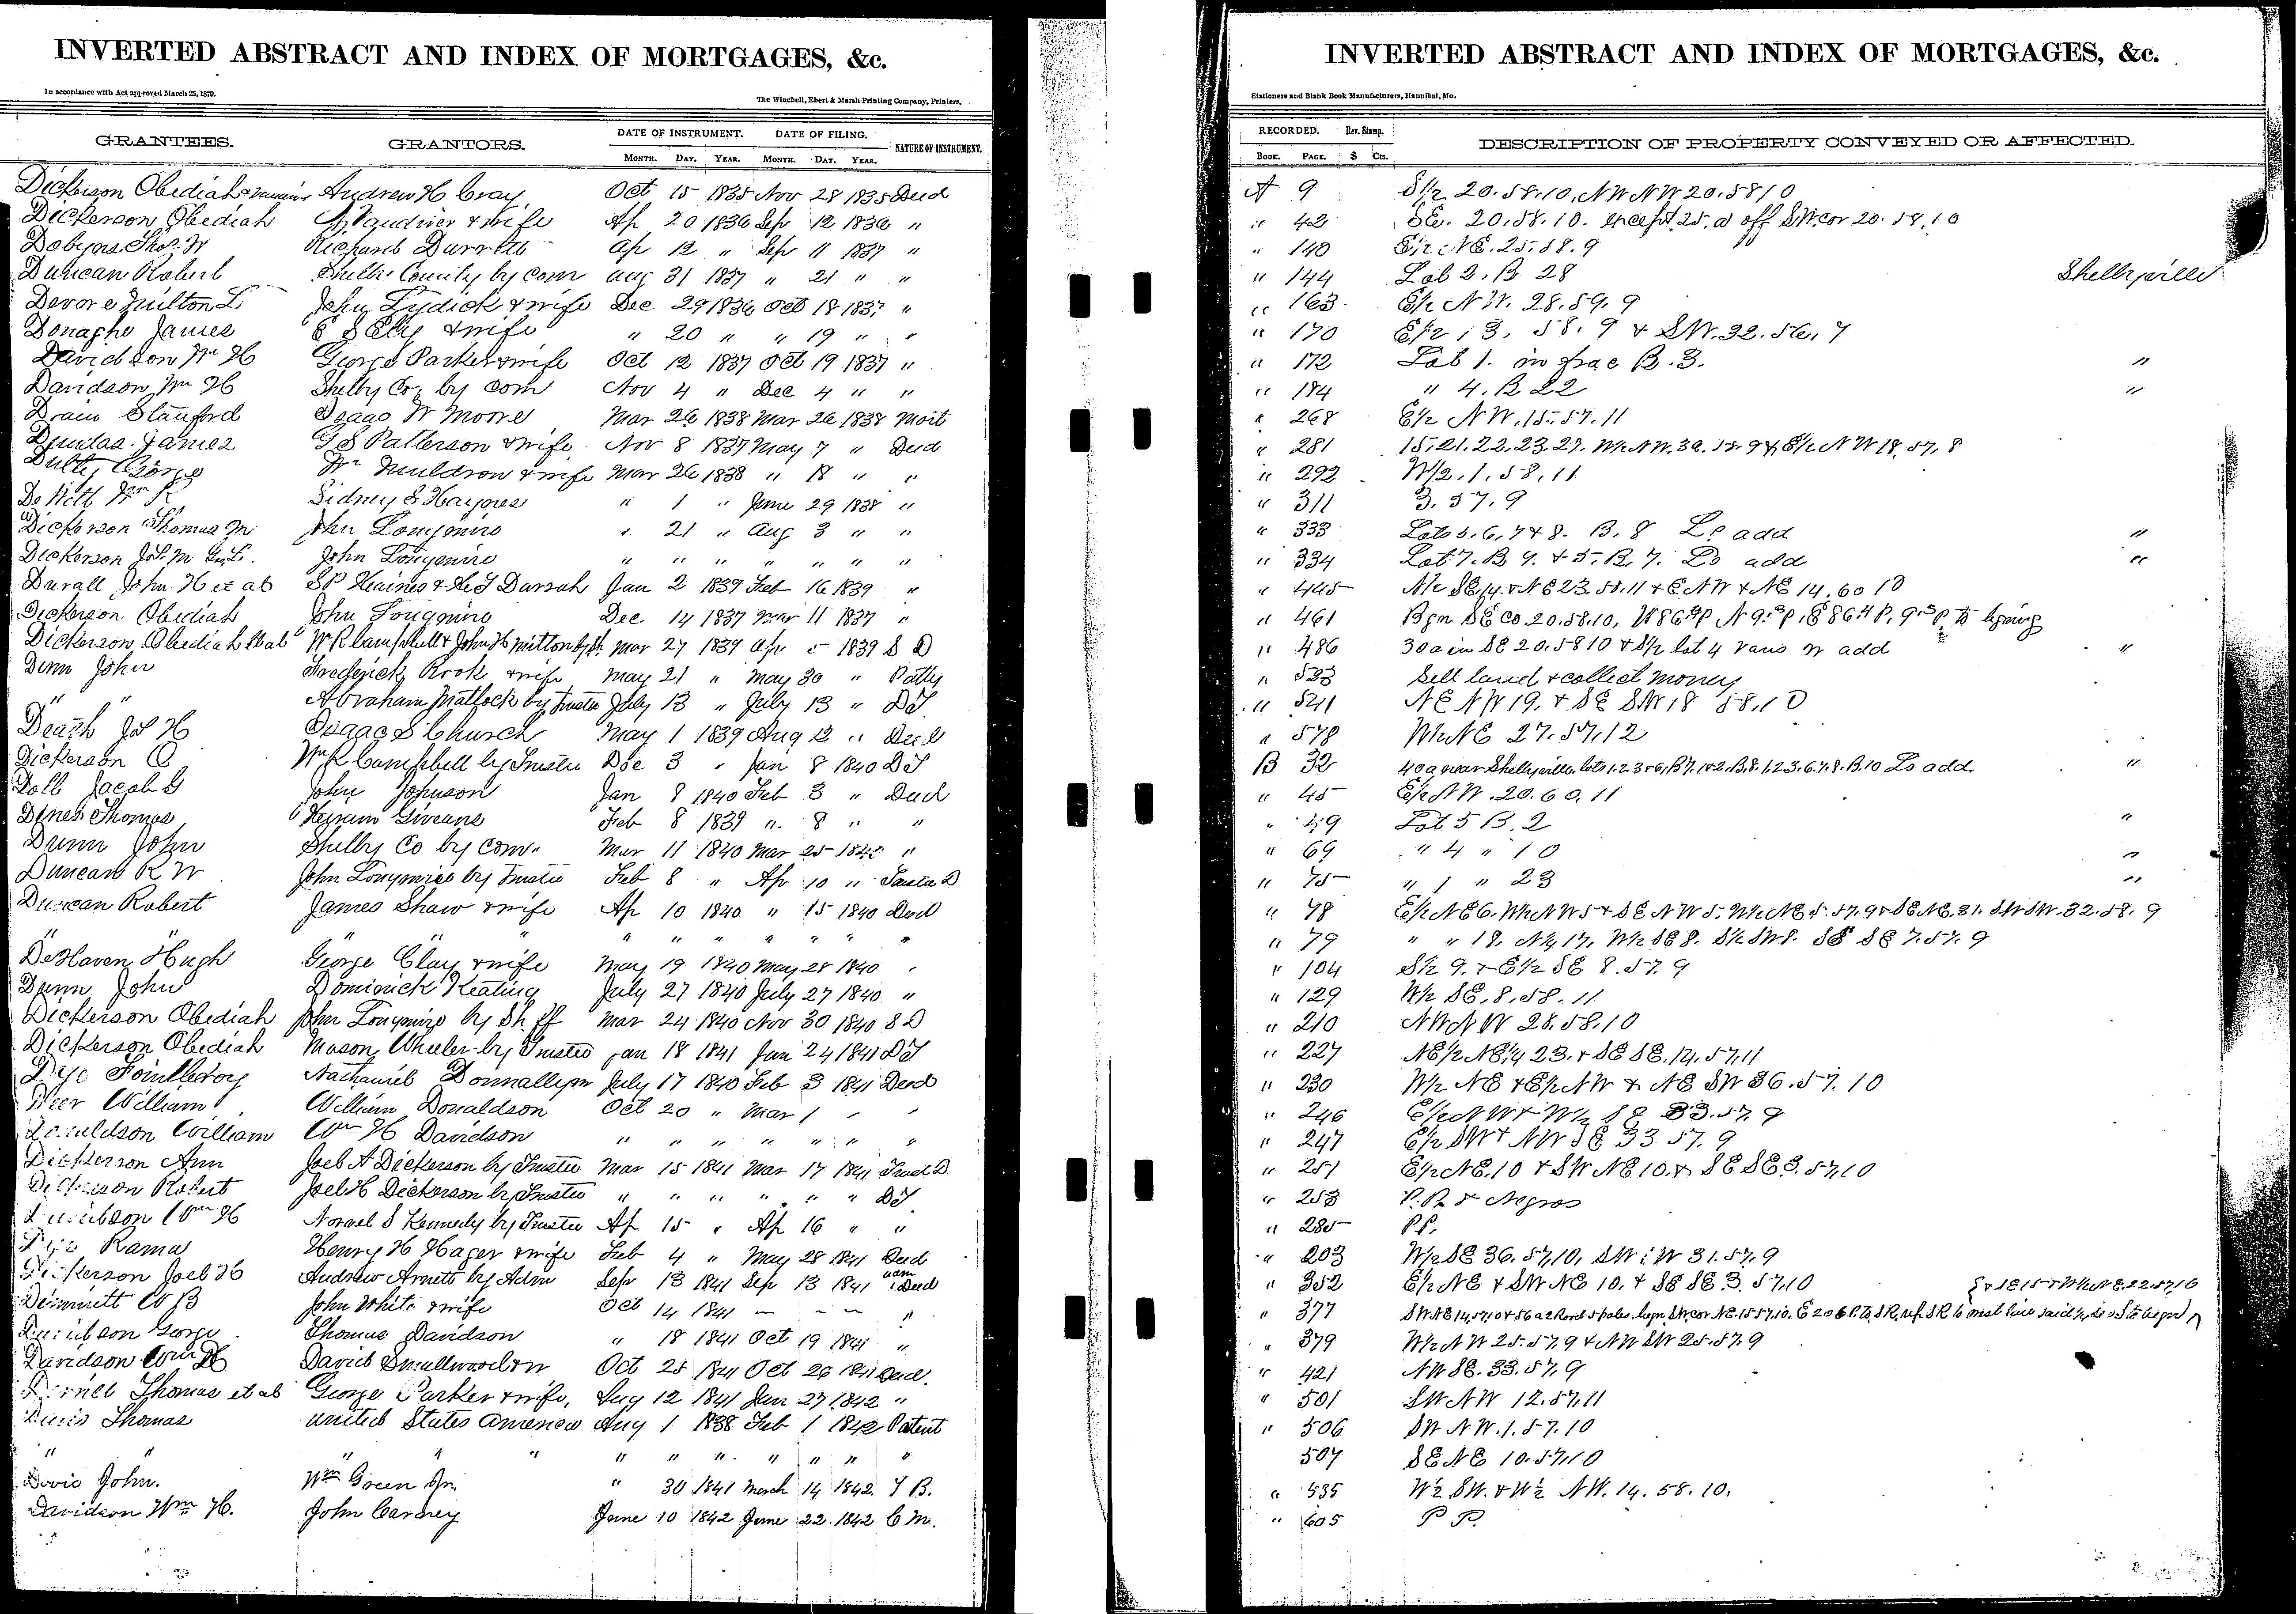 INVERTED ABSTRACT AND INDEX OF MORTGAGES, &c.
In accordance with Act approved March 25, 1870.
The Winchell, Ebert & Marsh Printing Company, Printers,
GRANTEES. GRANTORS. DATE OF INSTRUMENT. DATE OF FILING. NATURE OF INSTRUMENT.
MONTH. DAY. YEAR. MONTH. DAY. YEAR.
Dickerson Obediah Andrew H Cray Oct 15 1835 Nov 28 1835 Deed
Dickerson Obediah & wife Ap 20 1836 Sep 12 1836 "
Dobyns Thos. W Richard Durrett Ap 12 " Sep 11 1837 "
Duncan Robert Shelby County by Com Aug 31 1837 " 21 " "
Devore Milton L. John Lydick & wife Dec 29 1836 Oct 18 1837 "
Donagho James E S Ely & wife " 20 " " 19 " "
Davidson Wm H George Parker & wife Oct 12 1837 Oct 19 1837 "
Davidson Wm H Shelby Co, by Com Nov 4 " Dec 4 " "
Drain Stanford Isaac W Moore Mar 26 1838 Mar 26 1838 Mort
Dundas James G S Patterson & wife Nov 8 1837 May 7 " Deed
Dulty George Wm Muldrow & wife Mar 26 1838 " 18 " "
De Witt Wm R Sidney S Haynes " 1 " June 29 1838 "
Dickerson Thomas M John Longmire " 21 " Aug 3 " "
Dickerson John Longmire " " " " " " "
Durall John H et al S P Haines & H S Darrah Jan 2 1839 Feb 16 1839 "
Dickerson Obediah John Longmire Dec 14 1837 Mar 11 1837 "
Dickerson Obediah et al W R Campbell & John H Milton by Sh. Mar 27 1839 Apr 5 1839 S D
Dunn John Frederick Rook & wife May 21 " May 30 " P Atty
" " Abraham Matlock by Trustee July 13 " July 13 " D T
Death Jas H Isaac S Church May 1 1839 Aug 12 " Deed
Dickerson O Wm R Campbell by Trustee Dec 3 " Jan 8 1840 D T
Doll Jacob G John Johnson Jan 8 1840 Feb 3 " Deed
Dines Thomas Hiram Giveans Feb 8 1839 " 8 " "
Dunn John Shelby Co by Com. Mar 11 1840 Mar 25 "
Duncan R W John Longmire by Trustee Feb 8 " Ap 10 " Trustee D
Duncan Robert James Shaw & wife Ap 10 1840 " 15 1840 Deed
" " " " " " " " " "
DeHaven Hugh George Clay & wife May 19 1840 May 28 1840 "
Dunn John Dominick Keating July 27 1840 July 27 1840 "
Dickerson Obediah John Longmire by Shff Mar 24 1840 Nov 30 1840 S D
Dickerson Obediah Mason Wheeler by Trustee Jan 18 1841 Jan 24 1841 D T
Dye Fointleroy Nathaniel July 17 1840 Feb 3 1841 Deed
William William Donaldson Oct 20 " Mar 1 " "
Donaldson William Wm H Davidson " " " " " " "
Dickerson Ann Joel A Dickerson by Trustee Mar 15 1841 Mar 17 1841 Trust D
Dickerson Robert Joel H Dickerson by Trustee " " " " " " D T
Davidson Wm H Norvel S Kennedy by Trustee Ap 15 " Ap 16 " "
Dye Rama Henry H Hager & wife Feb 4 " May 28 1841 Deed
Dickerson Joel H Andrew Arnett by Adm Sep 13 1841 Sep 13 1841 adm Deed
Dimmitt W B John White & wife Oct 14 1841 — — — "
Davidson George Thomas Davidson " 18 1841 Oct 19 1841 "
Davidson Wm H David Smallwood Oct 25 1841 Oct 26 1841 Deed.
Thomas et al George Parker & wife, Aug 12 1841 Jan 27 1842 "
Davis Thomas United States America Aug 1 1838 Feb 1 1842 Patent
" " " " " " " " " " " "
John. Wm Green Jr. " 30 1841 March 14 1842 T B.
Davidson Wm H. John Carney June 10 1842 June 22. 1842 C M.
INVERTED ABSTRACT AND INDEX OF MORTGAGES, &c.
Stationers and Blank Book Manufacturers, Hannibal, Mo.
RECORDED. Rev. Stamp. DESCRIPTION OF PROPERTY CONVEYED OR AFFECTED.
BOOK. PAGE. $ Cts.
A 9 S1/2 20.58.10, NW NW 20.58 10
" 42 SE. 20.58.10. except 25. a off SW cor 20.58.10
" 140 E1/2 NE. 25.58.9
" 144 Lot 2. B 28 Shelbyville
" 163. E1/2 NW. 28.59.9
" 170 E1/2 13. 58.9 & SW. 32.56.7
" 172 Lot 1. in frac B. 3. "
" 184 " 4. B 22 "
" 268 E1/2 NW. 15.57.11
" 281 15.21.22.23.27.
" 292 W1/2. 1. 58. 11
" 311 3. 57. 9
" 333 Lots 5. 6, 7 & 8. B. 8 Ls add "
" 334 Lot 7. B 9. & 5. B. 7. Ls add "
" 445
" 461 Bgn SE Co. 20.58.10, to bgning
" 486 30 a in SE 20.58 10 & S1/2 lot 4 add "
" 523 Sell land & collect money
" 541 NE NW 19. & SE SW 18 58.10
" 578 W1/2 NE 27.57.12
B 32 40 a near Shelbyville. lots 1.2.3 & 6, B 7. 1 & 2. B. 8. 1.2.3.6.7.8. B. 10 Ls add. "
" 45 E1/2 NW. 20.60.11
" 49 Lot 5 B. 2 "
" 69 " 4 " 10 "
" 75 " 1 " 23 "
" 78 E1/2 NE 6. W1/2 NW 5 & SE NW 5. W1/2 NE 5.57.9 & SE NE. 31. SW SW. 32.58.9
" 79 " " 18. N1/2 17. W1/2 SE 8. S1/2 SW 8. SE SE 7.57.9
" 104 S1/2 9. & E1/2 SE 8.57.9
" 129 W1/2 SE. 8. 58. 11
" 210 NW NW 28.58.10
" 227 NE1/2 NE1/4 23. & SE SE. 14.57.11
" 230 W1/2 NE & E1/2 NW & NE SW 36.57.10
" 246 E1/2 NW & W1/2 SE 33.57.9
" 247 E1/2 SW & NW SE 33 57.9
" 251 E1/2 NE. 10 & SW NE 10. & SE SE 3. 57.10
" 253 P. P. & Negros
" 285 P P.
" 203 W1/2 SE 36.57.10, 31.57.9
" 352 E1/2 NE & SW NE 10. & SE SE. 3. 57.10
" 377
" 379 W1/2 NW 25.57.9 & NW SW 25.57.9
" 421 NW SE. 33.57.9
" 501 SW NW 12.57.11
" 506 SW NW. 1.57.10
507 SE NE 10.57.10
" 535 W1/2 SW. & W1/2 NW. 14. 58. 10.
" 605 P P.